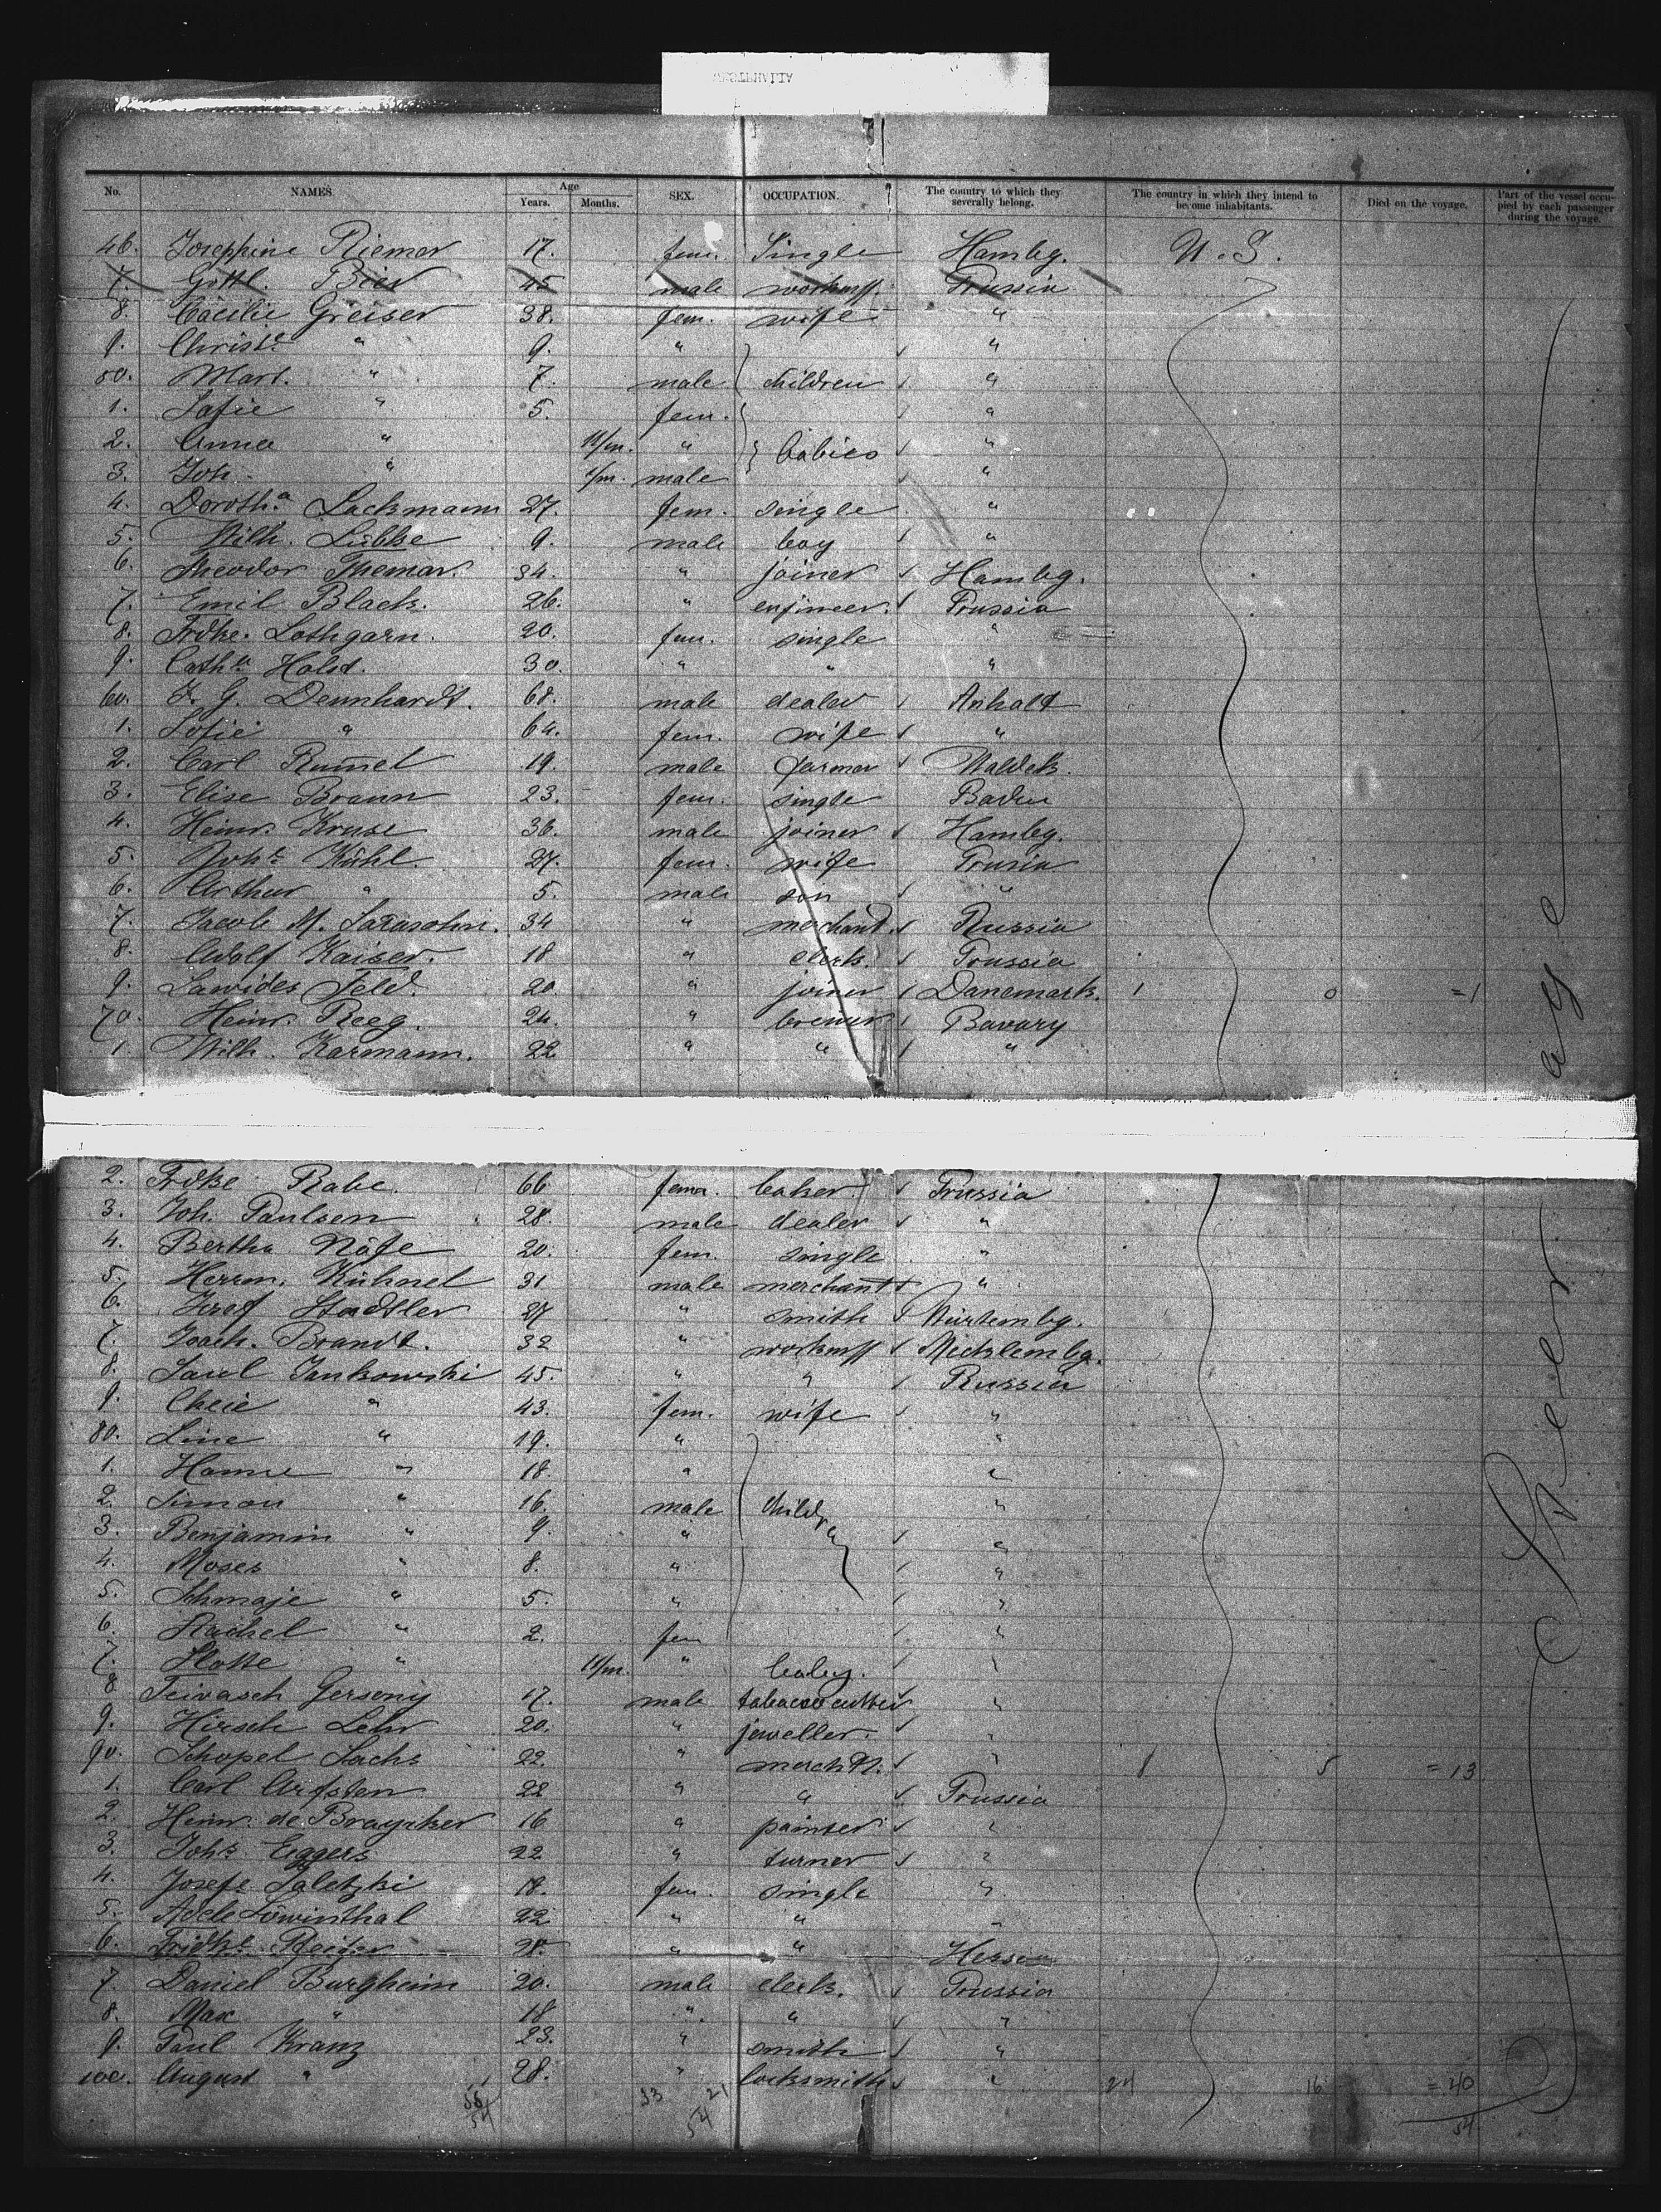 No. NAMES. Age Years. Months. SEX. OCCUPATION. The country to which they severally belong. The country in which they intend to become inhabitants. Died on the voyage. Part of the vessel occupied by each passenger during the voyage.
46. Josephine Riemer 17. fem. Single Hambg. U.S.
7. Gottl. Bier 45 male workmss. Prussia
8. Cäcilie Greiser 38. fem. wife "
9. Christe " 9. " "
50. Mart. " 7. male children "
1. Sofie " 5. fem. "
2. Anna " 11/m. " babies "
3. Joh. " /m. male "
4. Doroth.a Lackmann 27. fem. single "
5. Wilh. Lübke 9. male boy "
6. Theodor Themar. 34. " joiner Hambg.
7. Emil Black. 26. " engineer. Prussia
8. Frdke. Lothgarn. 20. fem. single "
9. Cath.a Holst. 30. " " "
60. F. G. Dennhardt. 68. male dealer Anhalt
1. Sofie " 64. fem. wife "
2. Carl Rumel 19. male farmer Waldeck.
3. Elise Braun 23. fem. single Baden
4. Heinr. Kruse 36. male joiner Hambg.
5. Joh.e Kühl. 27. fem. wife Prussia
6. Arthur " 5. male son "
7. Jacob M. Sarasohn. 34 " merchant. Russia
8. Adolf Kaiser. 18 " clerk. Prussia
9. Lawides Feld. 20. " joiner Danemark. 1 0 =1
70. Heinr. Reeg. 24. " brewer Bavary
1. Wilh. Karmann. 22 " " "
2. Frdke Rabe. 66 fem. baker. Prussia
3. Joh. Paulsen 28. male dealer "
4. Bertha Näfe 20. fem. single "
5. Herrm. Kühnel 31 male merchant "
6. Josef Stadtler 27 " smith Würtembg.
7. Joach. Brandt. 32 " workmss Mecklembg.
8. Saul Jankowski 45. " " Russia
9. Cheie " 43. fem. wife "
80. Line " 19. " "
1. Hanne " 18. " "
2. Simon " 16. male children "
3. Benjamin " 9. " "
4. Moses " 8. " "
5. Schmaje " 5. " "
6. Rachel " 2. fem "
7. Slotte " 11/m. " baby. "
8 Feiwasch Gersony 17. male tabacco cutter "
9. Hirsch Lehr 20. " jeweller. "
90. Schopel Sachs 22. " merchdt. " 1 5 =13
1. Carl Arfsten 22 " " Prussia
2. Heinr. de Braycker 16 " painter "
3. Johs Eggers 22 " turner "
4. Josefe Saletzki 18. fem. single "
5. Adele Löwinthal 22 " " "
6. Friedke. Reiter 28. " " Hessen
7. Daniel Burgheim 20. male clerk. Prussia
8. Max " 18 " " "
9. Paul Kranz 23. " smith "
100. August " 28. " locksmith " 24 16 =40
54 33 21 54 54
Steerage